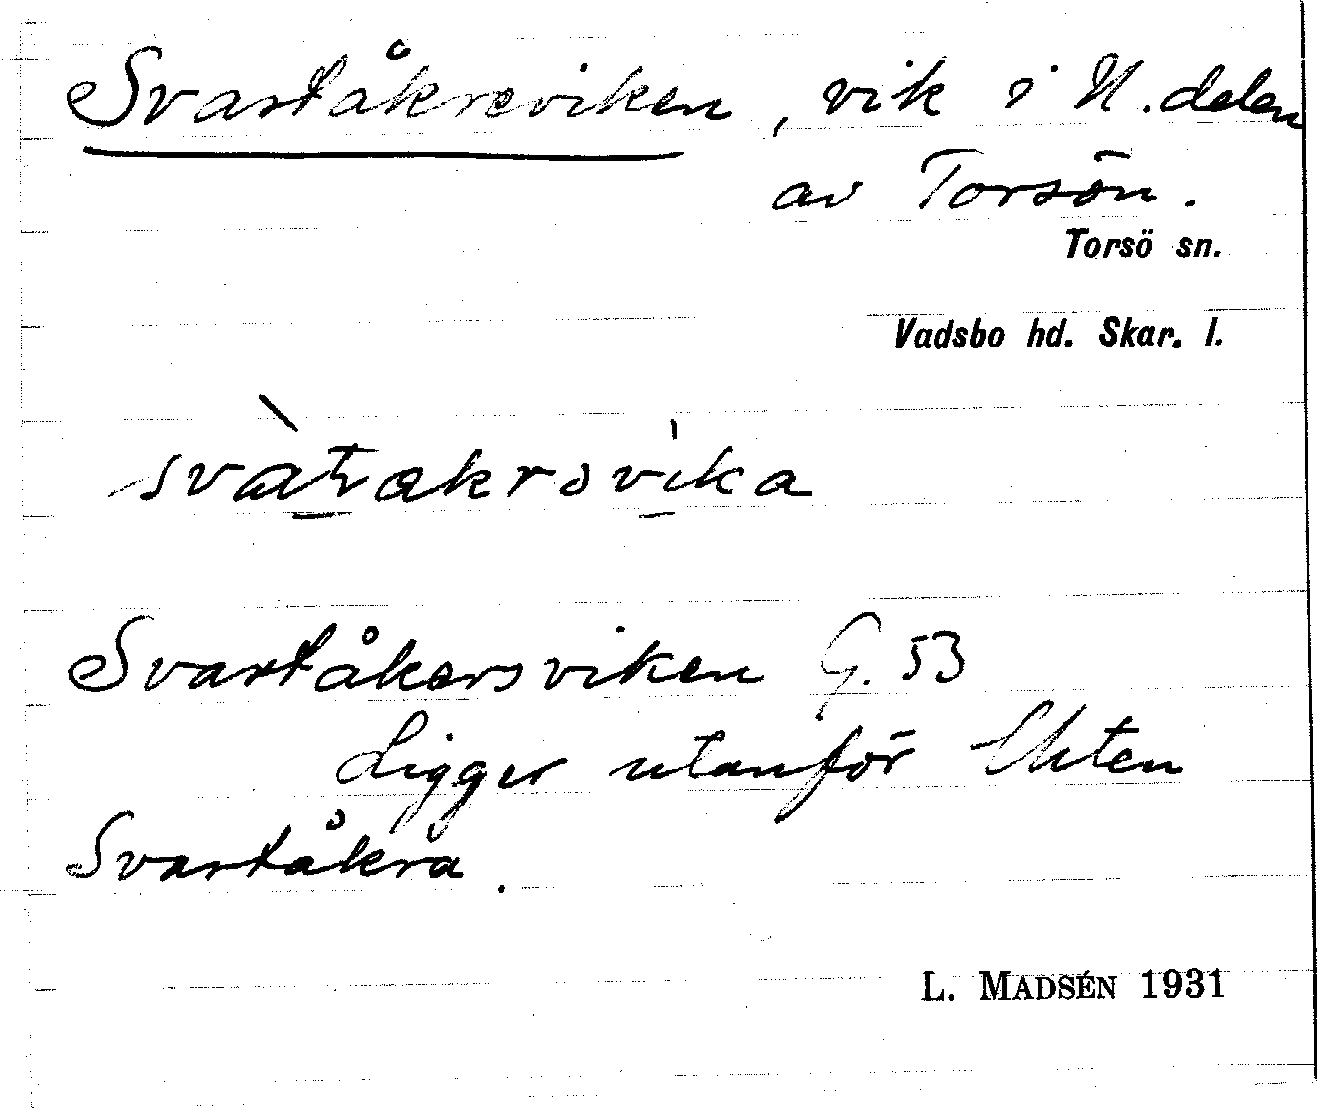 Svartåkreviken, vik i N. delen
av Torsön.
Torsö sn.
Vadsbo hd. Skar. l.
Svartåkersviken G. 53
Ligger utanför
Svartåkra.
L. MADSÉN 1931